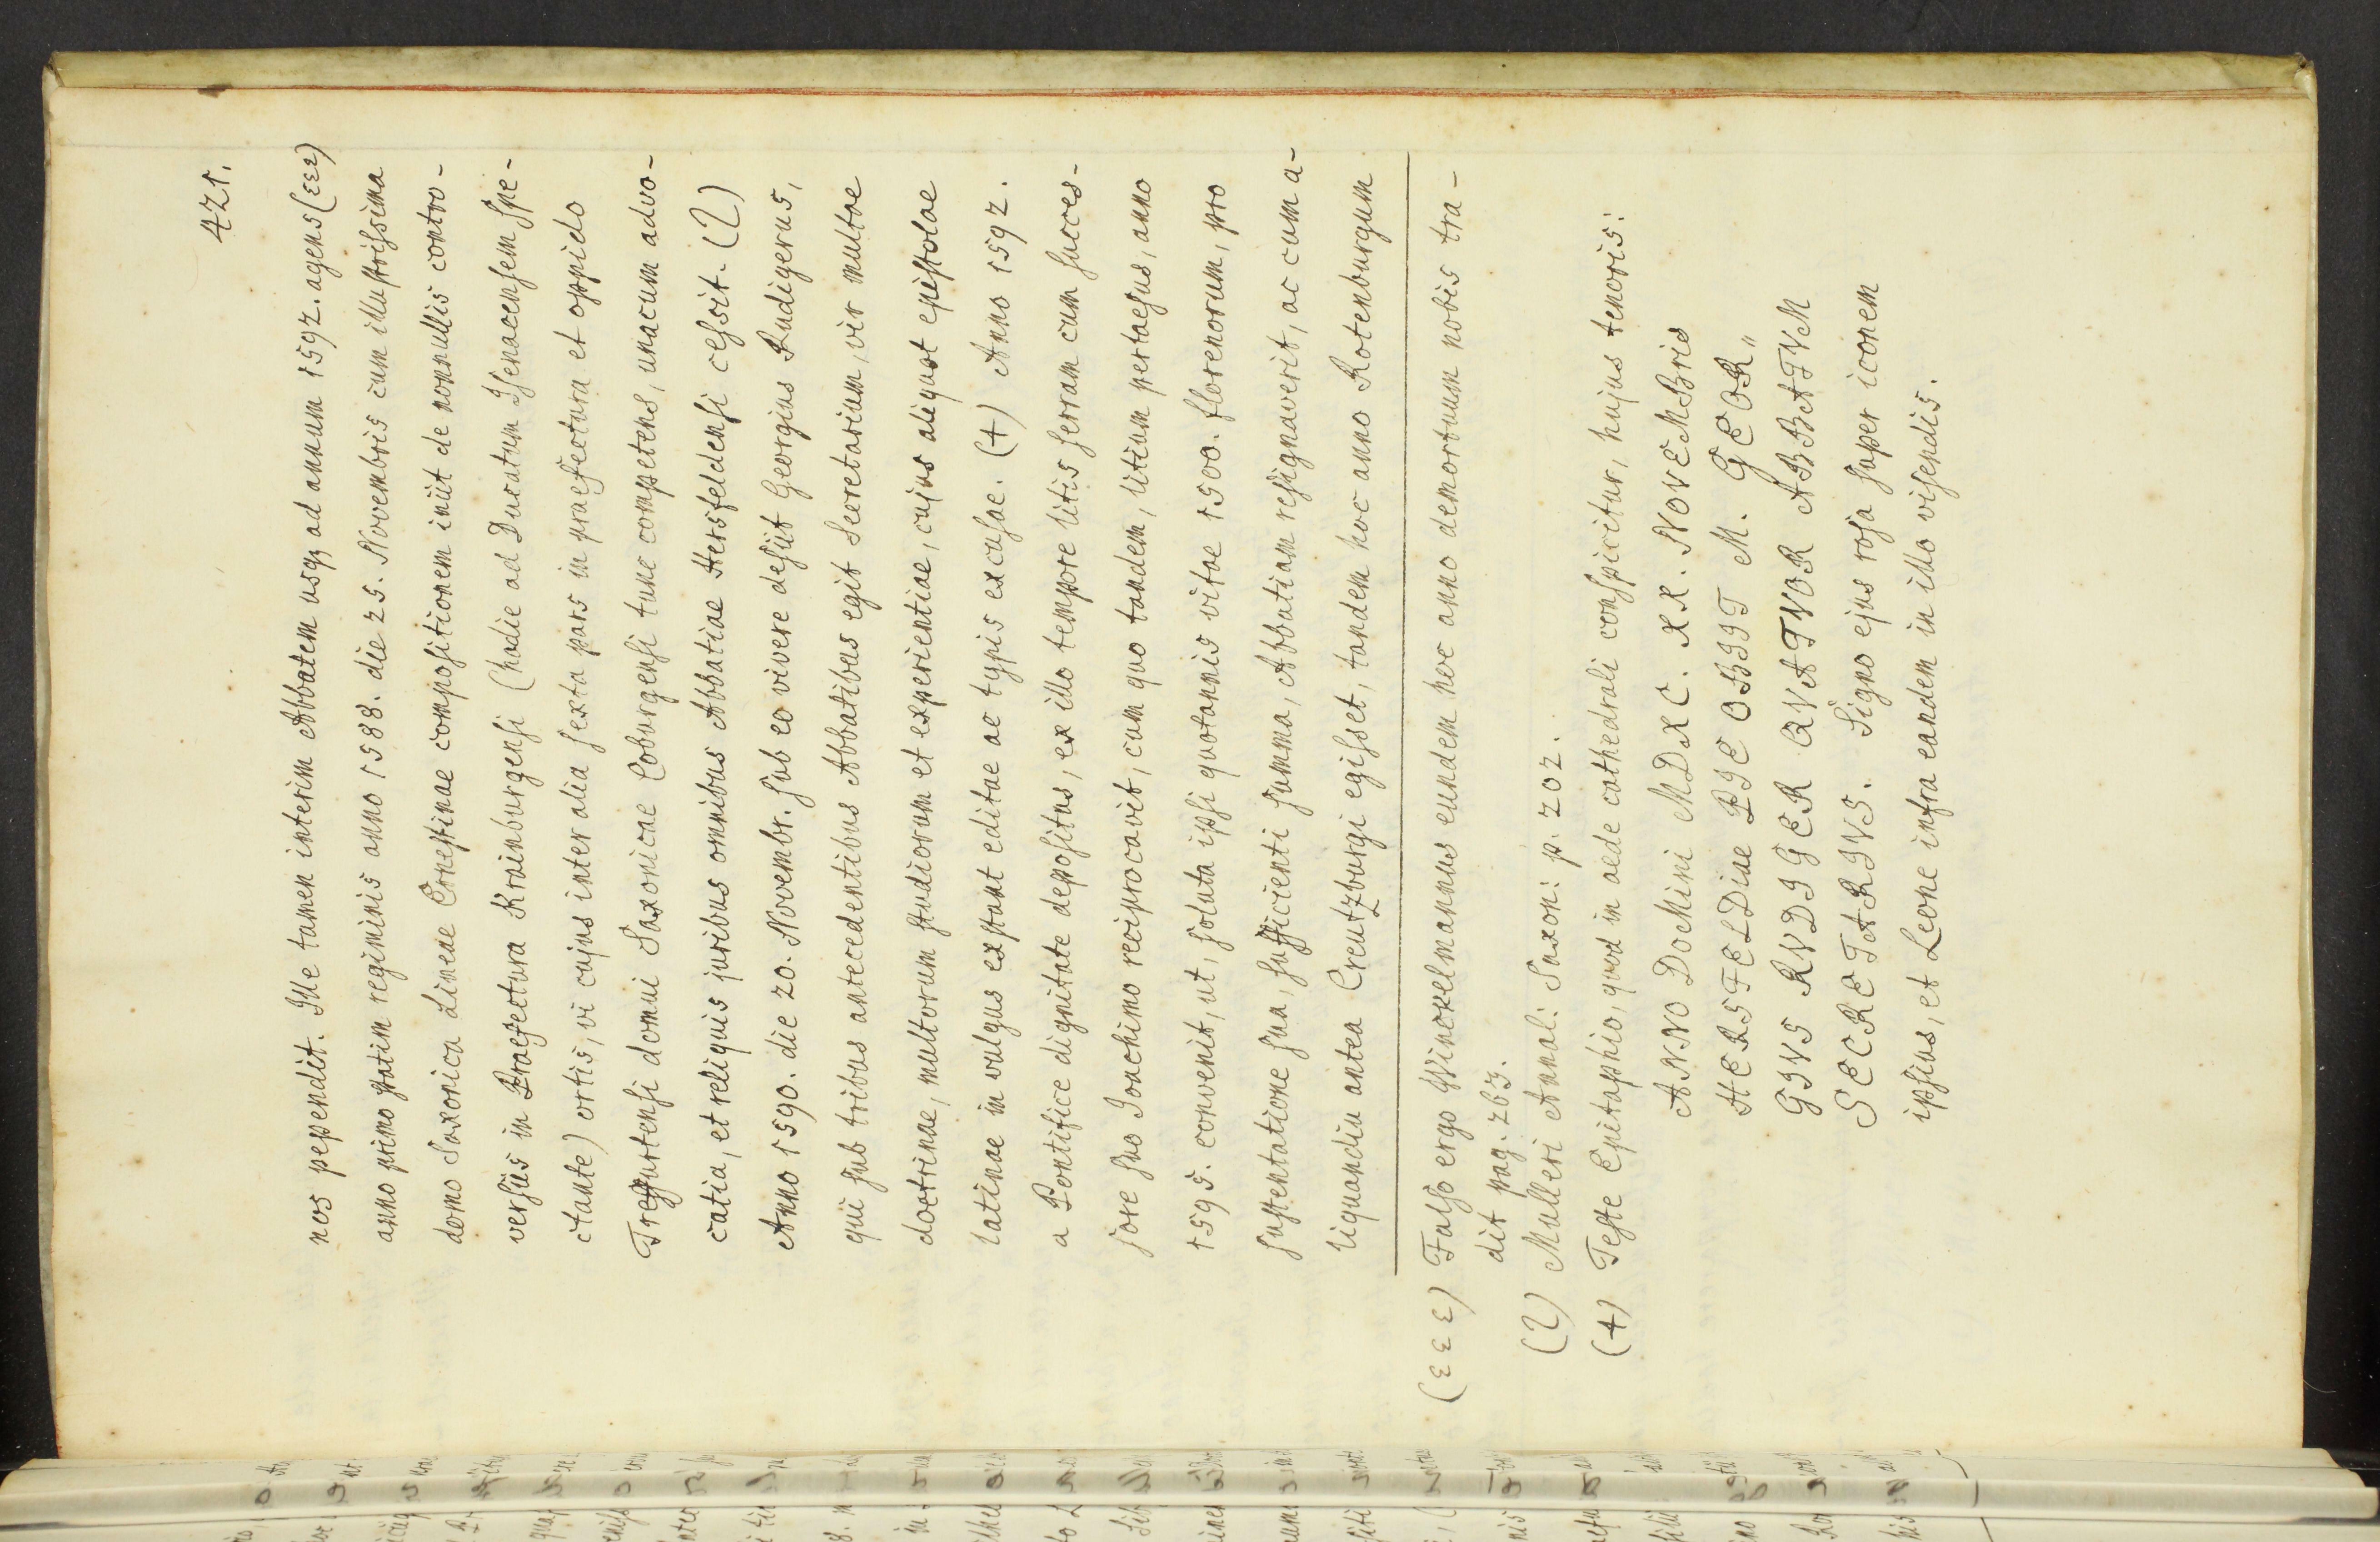 421.
nos pependit. Ille tamen interim Abbatem usq, ad annum 1592. agens (εεε)
anno primo statim regiminis anno 1588. die 25. Novembris cum illustrissima
domo Saxonica Lineae Ernestinae compositionem iniit de nonnullis contro-
versiis in Praefectura Krainburgensi (hodie ad Ducatum Isenacensem spe-
ctante) ortis, vi cujus inter alia sexta pars in praefectura et oppido
Treffurtensi domui Saxonicae Coburgensi tunc competens, unacum advo-
catia, et reliquis juribus omnibus Abbatiae Hersfeldensi cessit. (ζ)
Anno 1590. die 20. Novembr. sub eo vivere desiit Georgius Rudigerus,
qui sub tribus antecedentibus Abbatibus egit Secretarium, vir multae
doctrinae, multorum studiorum et experientiae, cujus aliquot epistolae
latinae in vulgus exstant editae ac typis excusae. (+) Anno 1592.
a Pontifice dignitate depositus, ex illo tempore litis serram cum succes-
sore suo Joachimo reciprocavit, cum quo tandem, litium pertaesus, anno
1595. convenit, ut, soluta ipsi quotannis vitae 1500. florenorum, pro
sustentatione sua, sufficienti summa, Abbatiam resignaverit, ac cum a-
liquandiu antea Creutzburgi egisset, tandem hoc anno Rotenburgum
(εεε) Falso ergo Winckelmannus eundem hoc anno demortuum nobis tra-
dit pag. 263.
(ζ) Mulleri Annal: Saxon: p. 202.
(+) Teste Epitaphio, quod in aede cathedrali conspicitur, hujus tenoris:
ANNO DoMini MDXC. XX. NOVEMBris
HERSFELDiae PIE OBIIT M. GEOR„
GIVS RVDIGER QVATVOR ABBATVM
SECRETARIVS. Signo ejus rosa super iconem
ipsius, et Leone infra eandem in illo visendis.